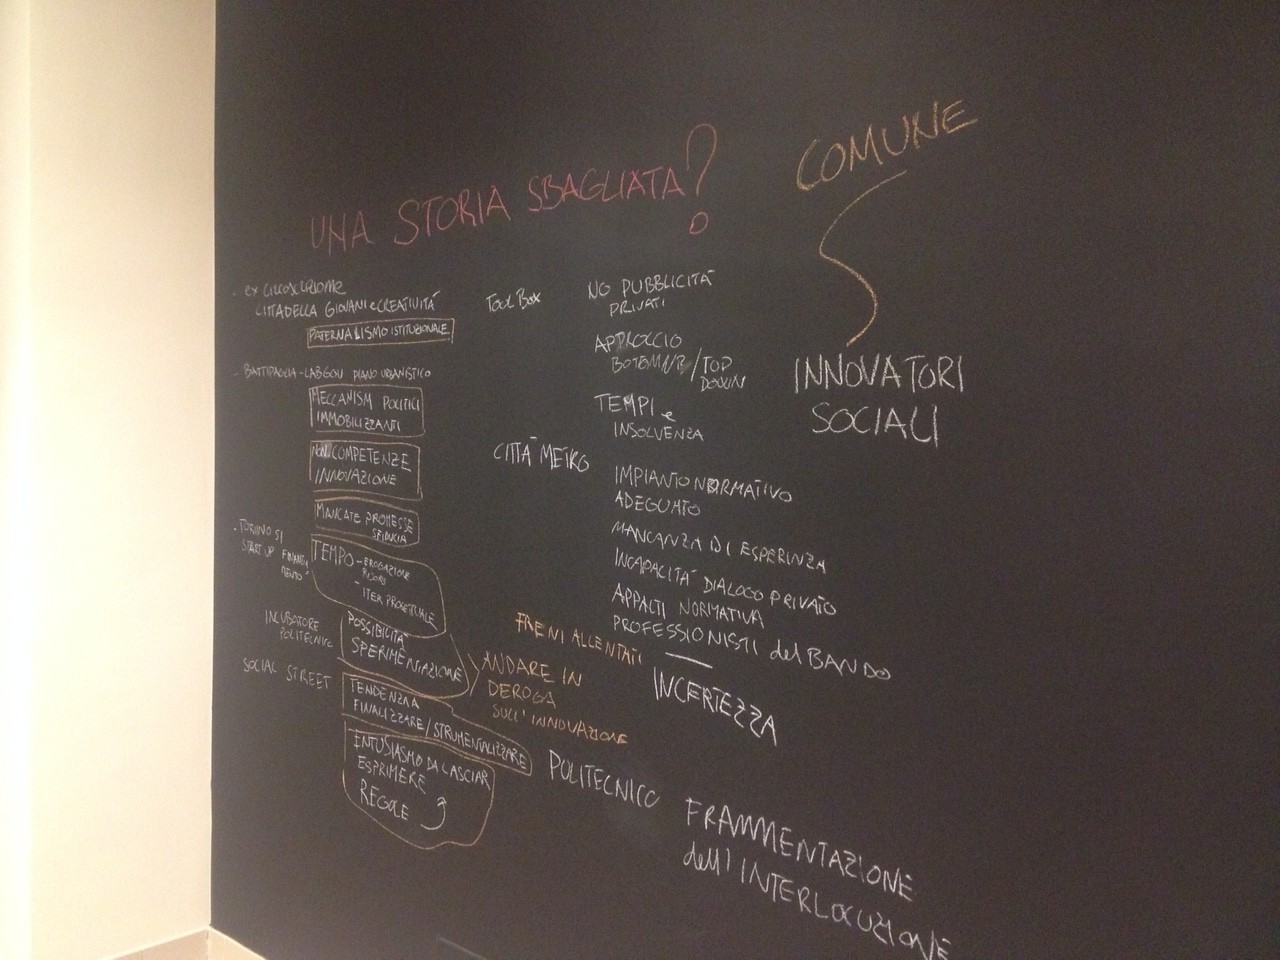 UNA STORIA SBAGLIATA?
COMUNE
INNOVATORI
SOCIALI
- ex CIRCOSCRIZIONE
CITTADELLA GIOVANI e CREATIVITÀ
PATERNALISMO ISTITUZIONALE
- BATTIPAGLIA - LABGOV PIANO URBANISTICO
MECCANISMI POLITICI
IMMOBILIZZANTI
NON COMPETENZE
INNOVAZIONE
MANCATE PROMESSE
SFIDUCIA
- TORINO SI
START UP
TEMPO - EROGAZIONE
- ITER PROGETTUALE
INCUBATORE
POLITECNICO
POSSIBILITÀ
SPERIMENTAZIONE
SOCIAL STREET
TENDENZA A
FINALIZZARE/STRUMENTALIZZARE
ENTUSIASMO DA LASCIAR
ESPRIMERE
REGOLE
Tool Box
NO PUBBLICITÀ
PRIVATI
APPROCCIO
/TOP
DOWN
TEMPI e
INSOLVENZA
CITTÀ METRO
IMPIANTO NORMATIVO
ADEGUATO
MANCANZA DI ESPERINZA
INCAPACITÀ DIALOGO PRIVATO
APPALTI NORMATIVA
PROFESSIONISTI del BANDO
INCERTEZZA
FRENI ALLENTATI
ANDARE IN
DEROGA
SULL'INNOVAZIONE
POLITECNICO
FRAMMENTAZIONE
dell'INTERLOCUZIONE